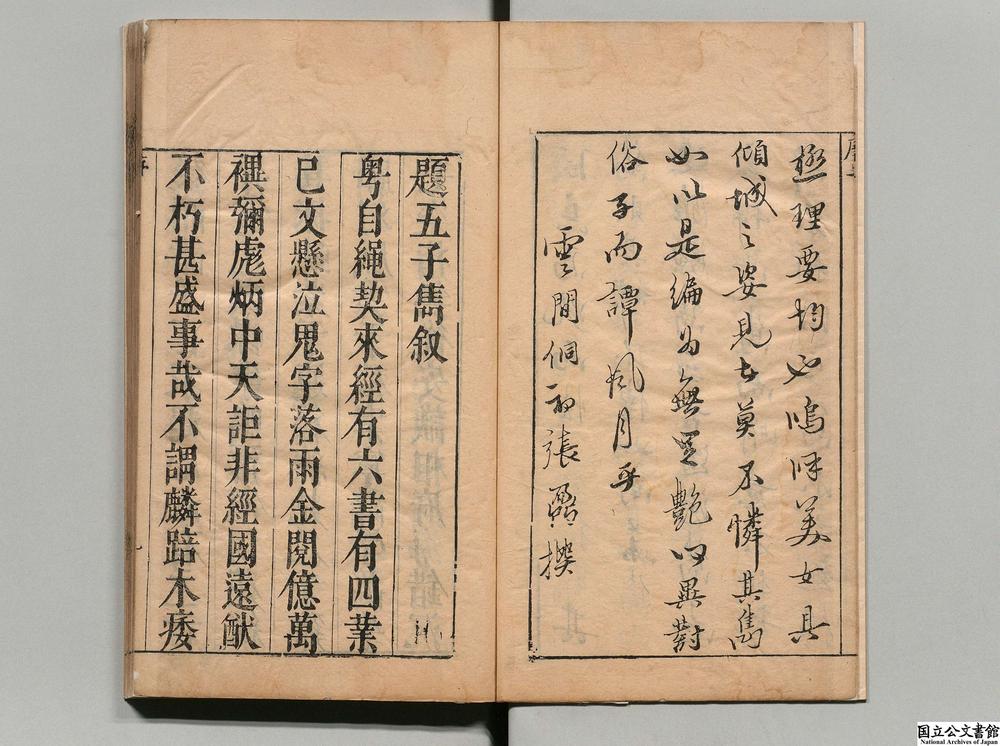 極理要均必嗚呼美女具
傾城之姿見者莫不憐其雋
如以是編為無足艷心異對
俗子而譚風月乎
雲間侗初張鼐撰
題五子雋叙
粤自繩契來經有六書有四業
已文懸泣鬼字落雨金閱億萬
禩彌彪炳中天詎非經國遠猷
不朽甚盛事哉不謂麟踣木痿
国立公文書館
National Archives of Japan